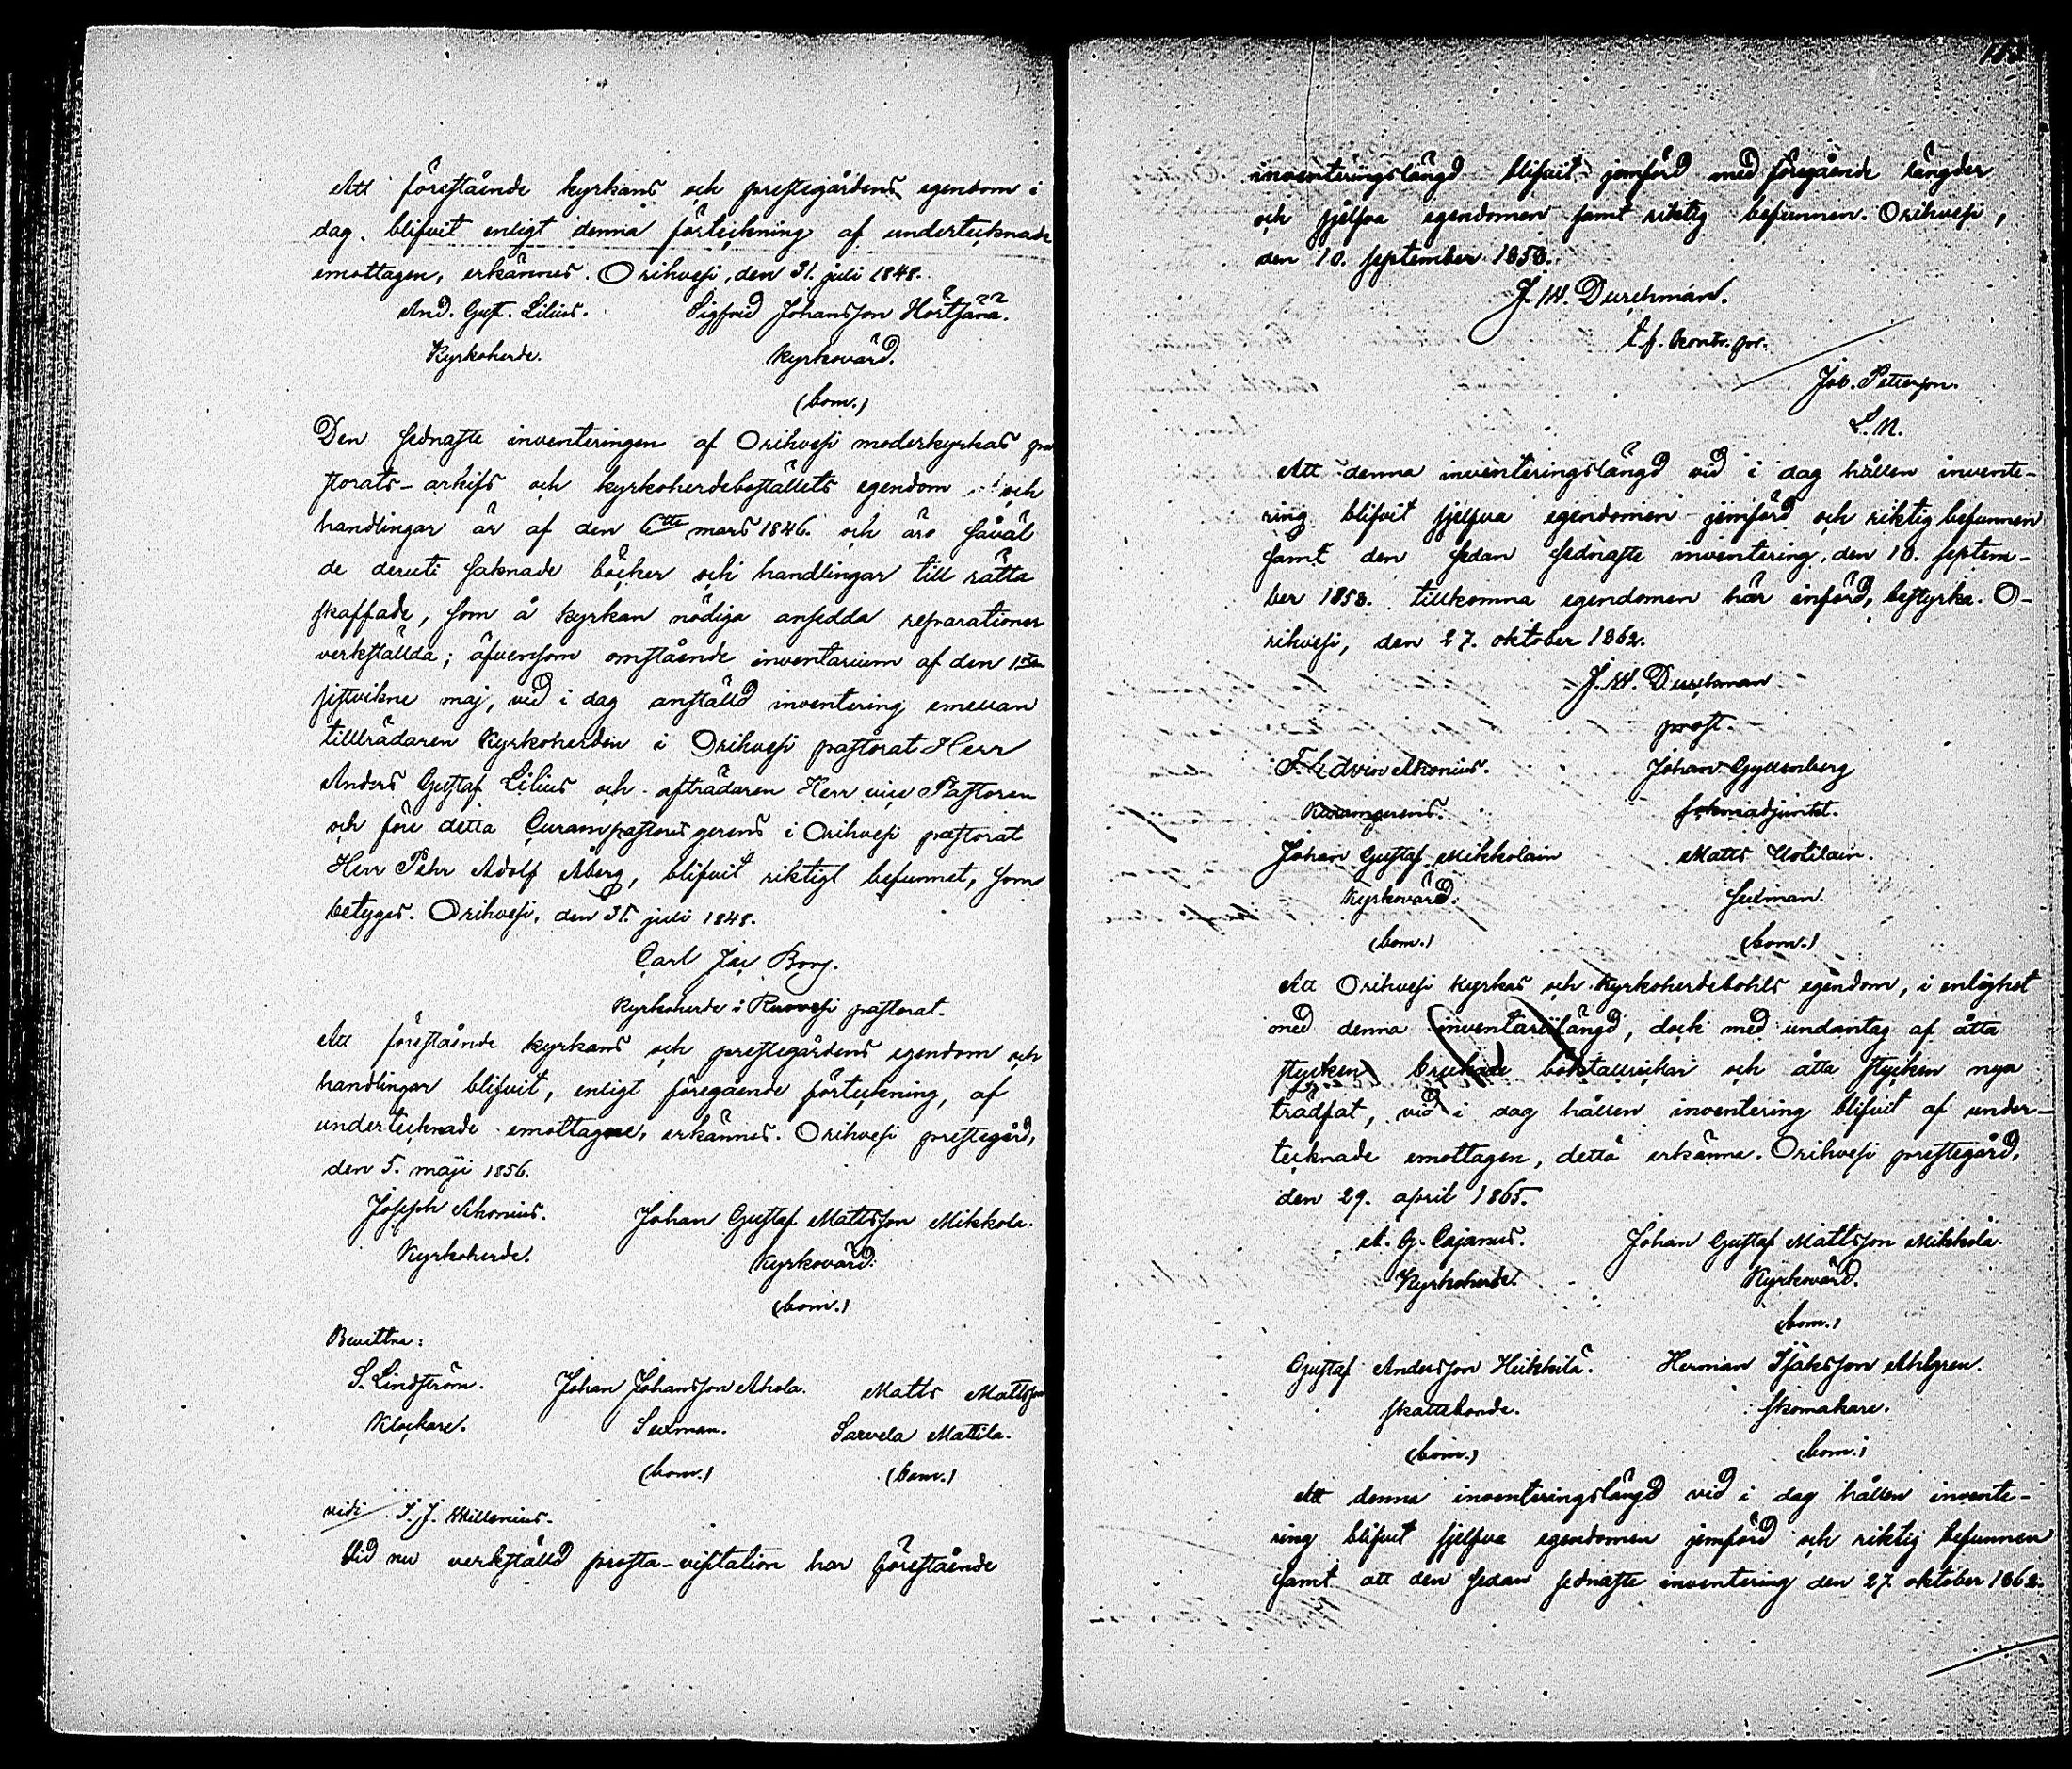 Att förestående kyrkans och prestegårdens egendom i
dag blifvit enligt denna förteckning af undertecknade
emottagen, erkännes. Orihvesi, den 31. juli 1848.
And. Gust. Lilius. Sigfrid Johansson Hörtsänä.
Kyrkoherde. Kyrkovärd.
(bom.)
Den sednaste inventeringen af Orihvesi moderkyrkas pa
storats-arkifs och kyrkoherdeboställets egendom och
handlingar är af den 6tte mars 1846. och äro såväl
de deruti saknade böcker och handlingar till rätta
skaffade, som å kyrkan nödiga ansedda reparationer
verkställda; äfvensom omstående inventarium af den 1sta
sistvikne maj, vid i dag anställd inventering emellan
tillträdaren Kyrkoherden i Orihvesi pastorat Herr
Anders Gustaf Lilius och afträdaren Herr vice Pastoren
och före detta Curam pastoris gerens i Orihvesi pastorat
Herr Pehr Adolf Åberg, blifvit riktigt befunnet, som
betyges. Orihvesi, den 31. juli 1848.
Carl Jac Borg.
Kyrkoherde i Ruovesi pastorat.
Att förestående kyrkans och prestegårdens egendom och
handlingar blifvit, enligt föregående förteckning, af
undertecknade emottagne, erkännes. Orihvesi prestegård,
den 5. maji 1856.
Joseph Ahonius. Johan Gustaf Mattsson Mikkola.
Kyrkoherde. Kyrkovärd.
(bom.)
Bevittna:
S. Lindström. Johan Johansson Ahola. Matts Mattsson
Klockare. Sexman. Sarvela Mattila.
(bom.) (bom.)
vidi J. J. Willenius.
Vid nu verkställd prosta-visitation har förestående
inventeringslängd blifvit jemförd med föregående längder
och sjelfva egendomen samt riktig befunnen. Orihvesi,
den 10. september 1858.
J. W. Durchman.
t. f. kontr. pr.
Job. Peterson.
L. M.
Att denna inventeringslängd vid i dag hållen invente-
ring blifvit sjelfva egendomen jemförd och riktig befunnen
samt den sedan sednaste inventering, den 10. septem-
ber 1858. tillkomna egendomen här införd, bestyrka. O-
rihvesi, den 27. oktober 1862.
J. W. Durchman
prost.
F. Edvin Ahonius. Johan Gyllenberg
Kuramgerens. sokneadjunkt.
Johan Gustaf Mikkolain Matts Uotilain.
Kyrkovärd. Sexman.
(bom.) (bom.)
Att Orihvesi kyrkas och Kyrkoherdebohls egendom, i enlighet
med denna inventariilängd, dock med undantag af åtta
stycken brukade boktallrickar och åtta stycken nya
trädfat, vid i dag hållen inventering blifvit af under-
tecknade emottagen, detta erkänna. Orihvesi prestegård,
den 29. april 1865.
A. G. Cajanus. Johan Gustaf Mattsson Mikkola.
Kyrkoherde. Kyrkovärd.
(bom.)
Gustaf Andersson Heikkilä. Herman Isaksson Ahlgren.
skattebonde. skomakare.
(bom.) (bom.)
Att denna inventeringslängd vid i dag hållen invente-
ring blifvit sjelfva egendomen jemförd och riktig befunnen
samt att den sedan sednaste inventering den 27 oktober 1862.